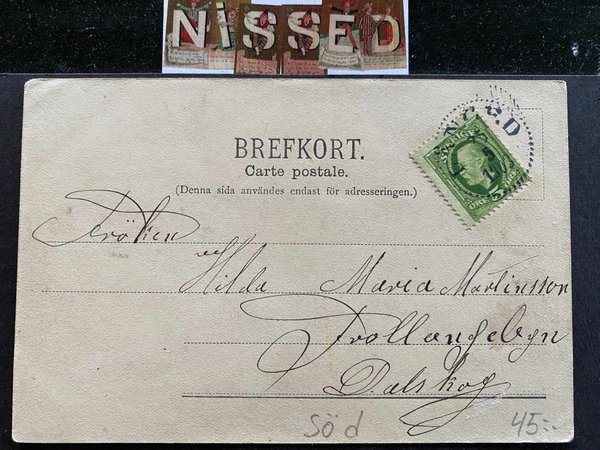 NiSSED
BREFKORT.
Carte postale.
(Denna sida användes endast för adresseringen.)
Fröken
Hilda Maria Martinsson
Dalskog
söd 45:-